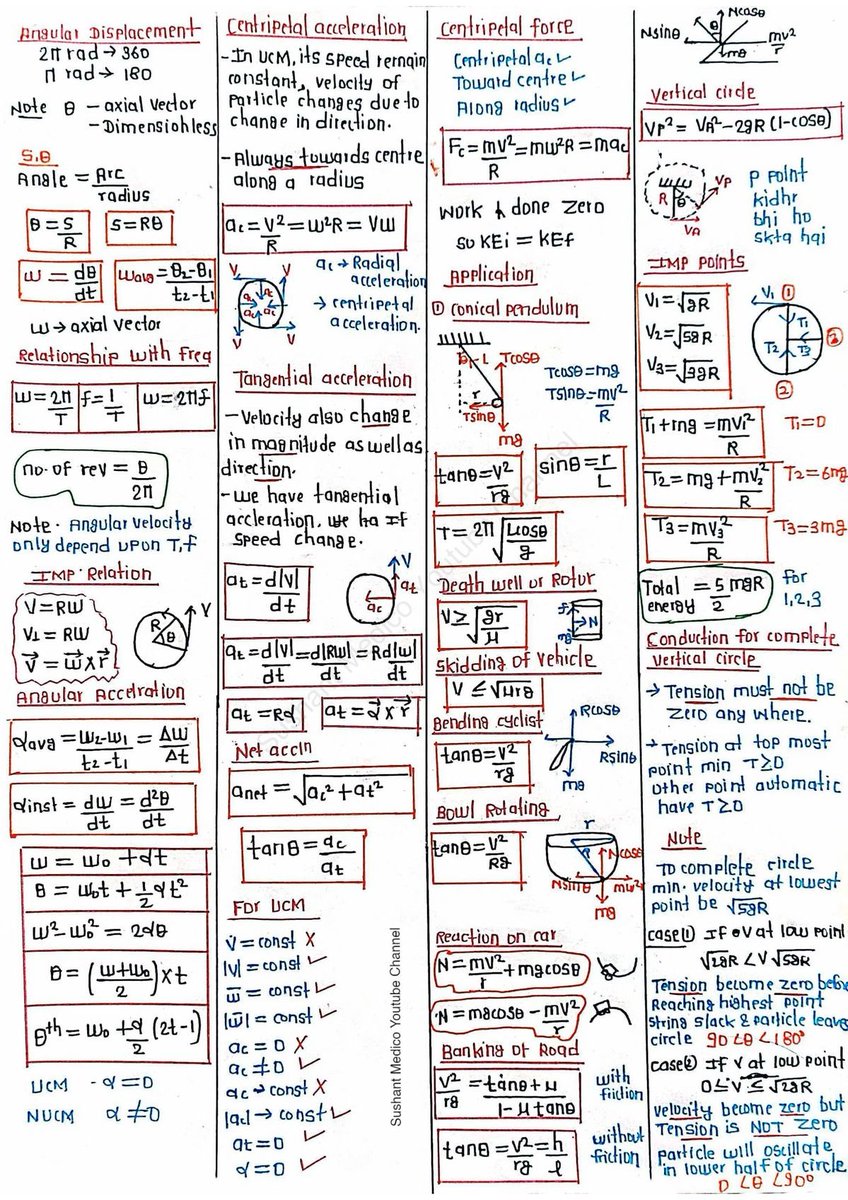 Angular Displacement
2π rad → 360
π rad → 180
Note θ - axial vector
- Dimensionless
S.θ
Angle = Arc/radius
θ = S/R
S = Rθ
ω = dθ/dt
ωavg = θ2-θ1/t2-t1
ω → axial vector
Relationship with freq
ω = 2π/T
f = 1/T
ω = 2πf
no. of rev = θ/2π
Note. Angular velocity
only depend upon T, f
IMP. Relation
V = Rω
V⊥ = Rω
V⃗ = ω⃗ × r⃗
R
θ
V
Angular Accelration
αavg = ω2-ω1/t2-t1 = Δω/Δt
αinst = dω/dt = d²θ/dt
ω = ω0 + αt
θ = ω0t + 1/2 αt²
ω² - ω0² = 2αθ
θ = (ω+ω0/2) × t
θth = ω0 + α/2 (2t-1)
UCM - α = 0
NUCM α ≠ 0
Centripetal acceleration
- In UCM, its speed remain
constant, velocity of
particle changes due to
change in direction.
- Always towards centre
along a radius
ac = V²/R = ω²R = Vω
V
V
V
V
ac
ac
ac
ac
ac → Radial
acceleration
→ centripetal
acceleration.
Tangential acceleration
- Velocity also change
in magnitude as well as
direction.
- we have tangential
accleration, we ha If
speed change.
at = d|V|/dt
V
at
ac
at = d|V|/dt = d|Rω|/dt = Rd|ω|/dt
at = Rα
at = α⃗ × r⃗
Net accln
anet = √ac² + at²
tanθ = ac/at
For UCM
V̇ = const ✗
|V| = const ✓
ω̅ = const ✓
|ω̅| = const ✓
ac = 0 ✗
ac ≠ 0 ✓
ac → const ✗
|ac| → const ✓
at = 0 ✓
α = 0 ✓
Sushant Medico Youtube Channel
Centripetal force
Centripetal ac ✓
Toward centre ✓
Along radius ✓
Fc = mV²/R = mω²R = mac
work done zero
so KEi = KEf
Application
① Conical pendulum
θ
L
Tcosθ
r
Tsinθ
mg
Tcosθ = mg
Tsinθ = mv²/R
tanθ = V²/rg
sinθ = r/L
T = 2π √Lcosθ/g
Death well or Rotor
V ≥ √gr/μ
f
N
mg
Skidding of Vehicle
V ≤ √μrg
Bending cyclist
tanθ = V²/rg
Rcosθ
Rsinθ
mg
Bowl Rotating
tanθ = V²/Rg
r
Ncosθ
Nsinθ
mv²
mg
Reaction on car
N = mv²/r + mgcosθ
N = mgcosθ - mv²/r
Banking of Road
V²/rg = tanθ+μ/1-μtanθ
with
friction
tanθ = V²/rg = h/l
without
friction
Ncosθ
Nsinθ
θ
mv²/r
mg
Vertical circle
VP² = VA² - 2gR (1-cosθ)
R
θ
VP
VA
P point
kidhr
bhi ho
skta hai
IMP points
V1 = √gR
V2 = √5gR
V3 = √3gR
V1
①
T1
T2
T3
③
②
T1 + mg = mV1²/R
T1 = 0
T2 = mg + mV2²/R
T2 = 6mg
T3 = mV3²/R
T3 = 3mg
Total energy = 5/2 mgR
for
1,2,3
Conduction for complete
vertical circle
→ Tension must not be
zero any where.
→ Tension at top most
point min T ≥ 0
other point automatic
have T ≥ 0
Note
TO complete circle
min. velocity at lowest
point be √5gR
case(1) If V at low point
√2gR < V √5gR
Tension become zero before
Reaching highest point
string slack & particle leaves
circle 90 < θ < 180°
case(2) If V at low point
0 ≤ V ≤ √2gR
velocity become zero but
Tension is NOT zero
particle will oscillate
in lower half of circle
0 < θ < 90°